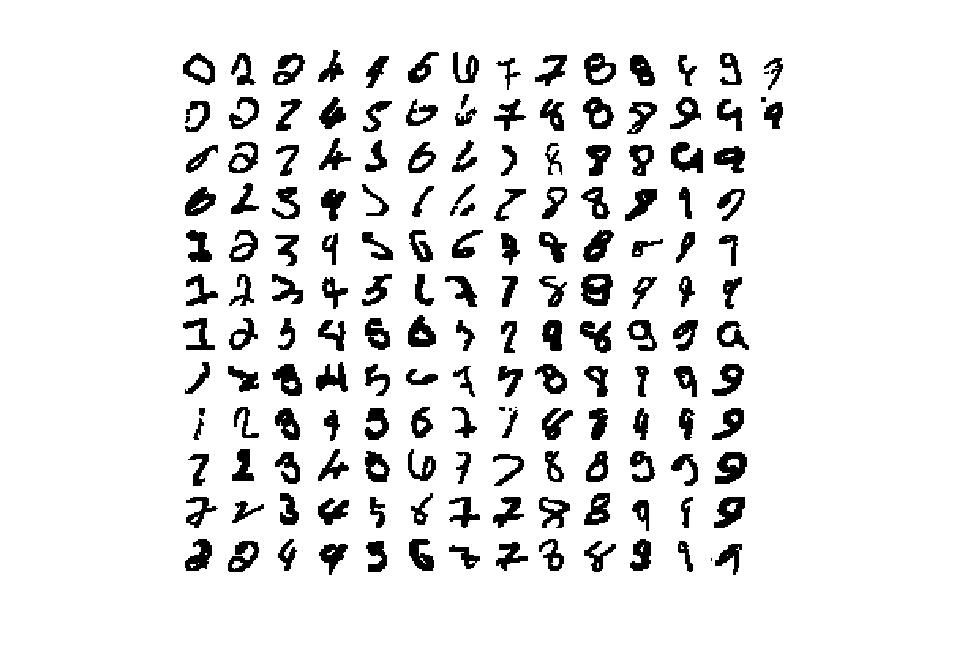 0 2 2 4 4 6 6 7 7 8 8 9 9 9
0 2 2 4 5 6 6 7 8 8 8 9 9 9
0 2 2 4 5 6 6 7 8 8 8 9 9
0 2 3 4 5 6 6 7 8 8 8 9 9
1 2 3 4 5 6 6 7 8 8 8 9 9
1 2 3 4 5 6 7 7 8 8 9 9 9
1 2 3 4 5 6 7 7 8 8 9 9 9
1 2 3 4 5 6 7 7 8 8 9 9 9
1 2 3 4 5 6 7 7 8 8 9 9 9
2 2 3 4 5 6 7 7 8 8 9 9 9
2 2 3 4 5 6 7 7 8 8 9 9 9
2 2 4 4 5 6 7 7 8 8 9 9 9